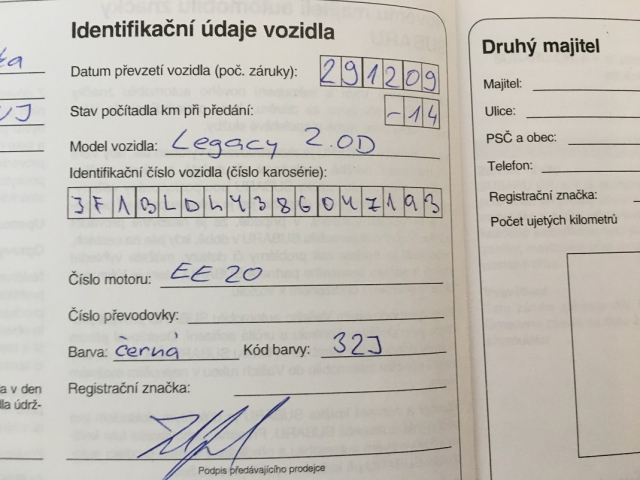 Identifikační údaje vozidla
Datum převzetí vozidla (poč. záruky): 291209
Stav počítadla km při předání: -14
Model vozidla: Legacy 2.0D
Identifikační číslo vozidla (číslo karosérie):
JF1BLDLY38G047193
Číslo motoru: EE20
Číslo převodovky:
Barva: černá Kód barvy: 32J
Registrační značka:
Podpis předávajícího prodejce
a v den
lla údrž-
Druhý majitel
Majitel:
Ulice:
PSČ a obec:
Telefon:
Registrační značka:
Počet ujetých kilometrů